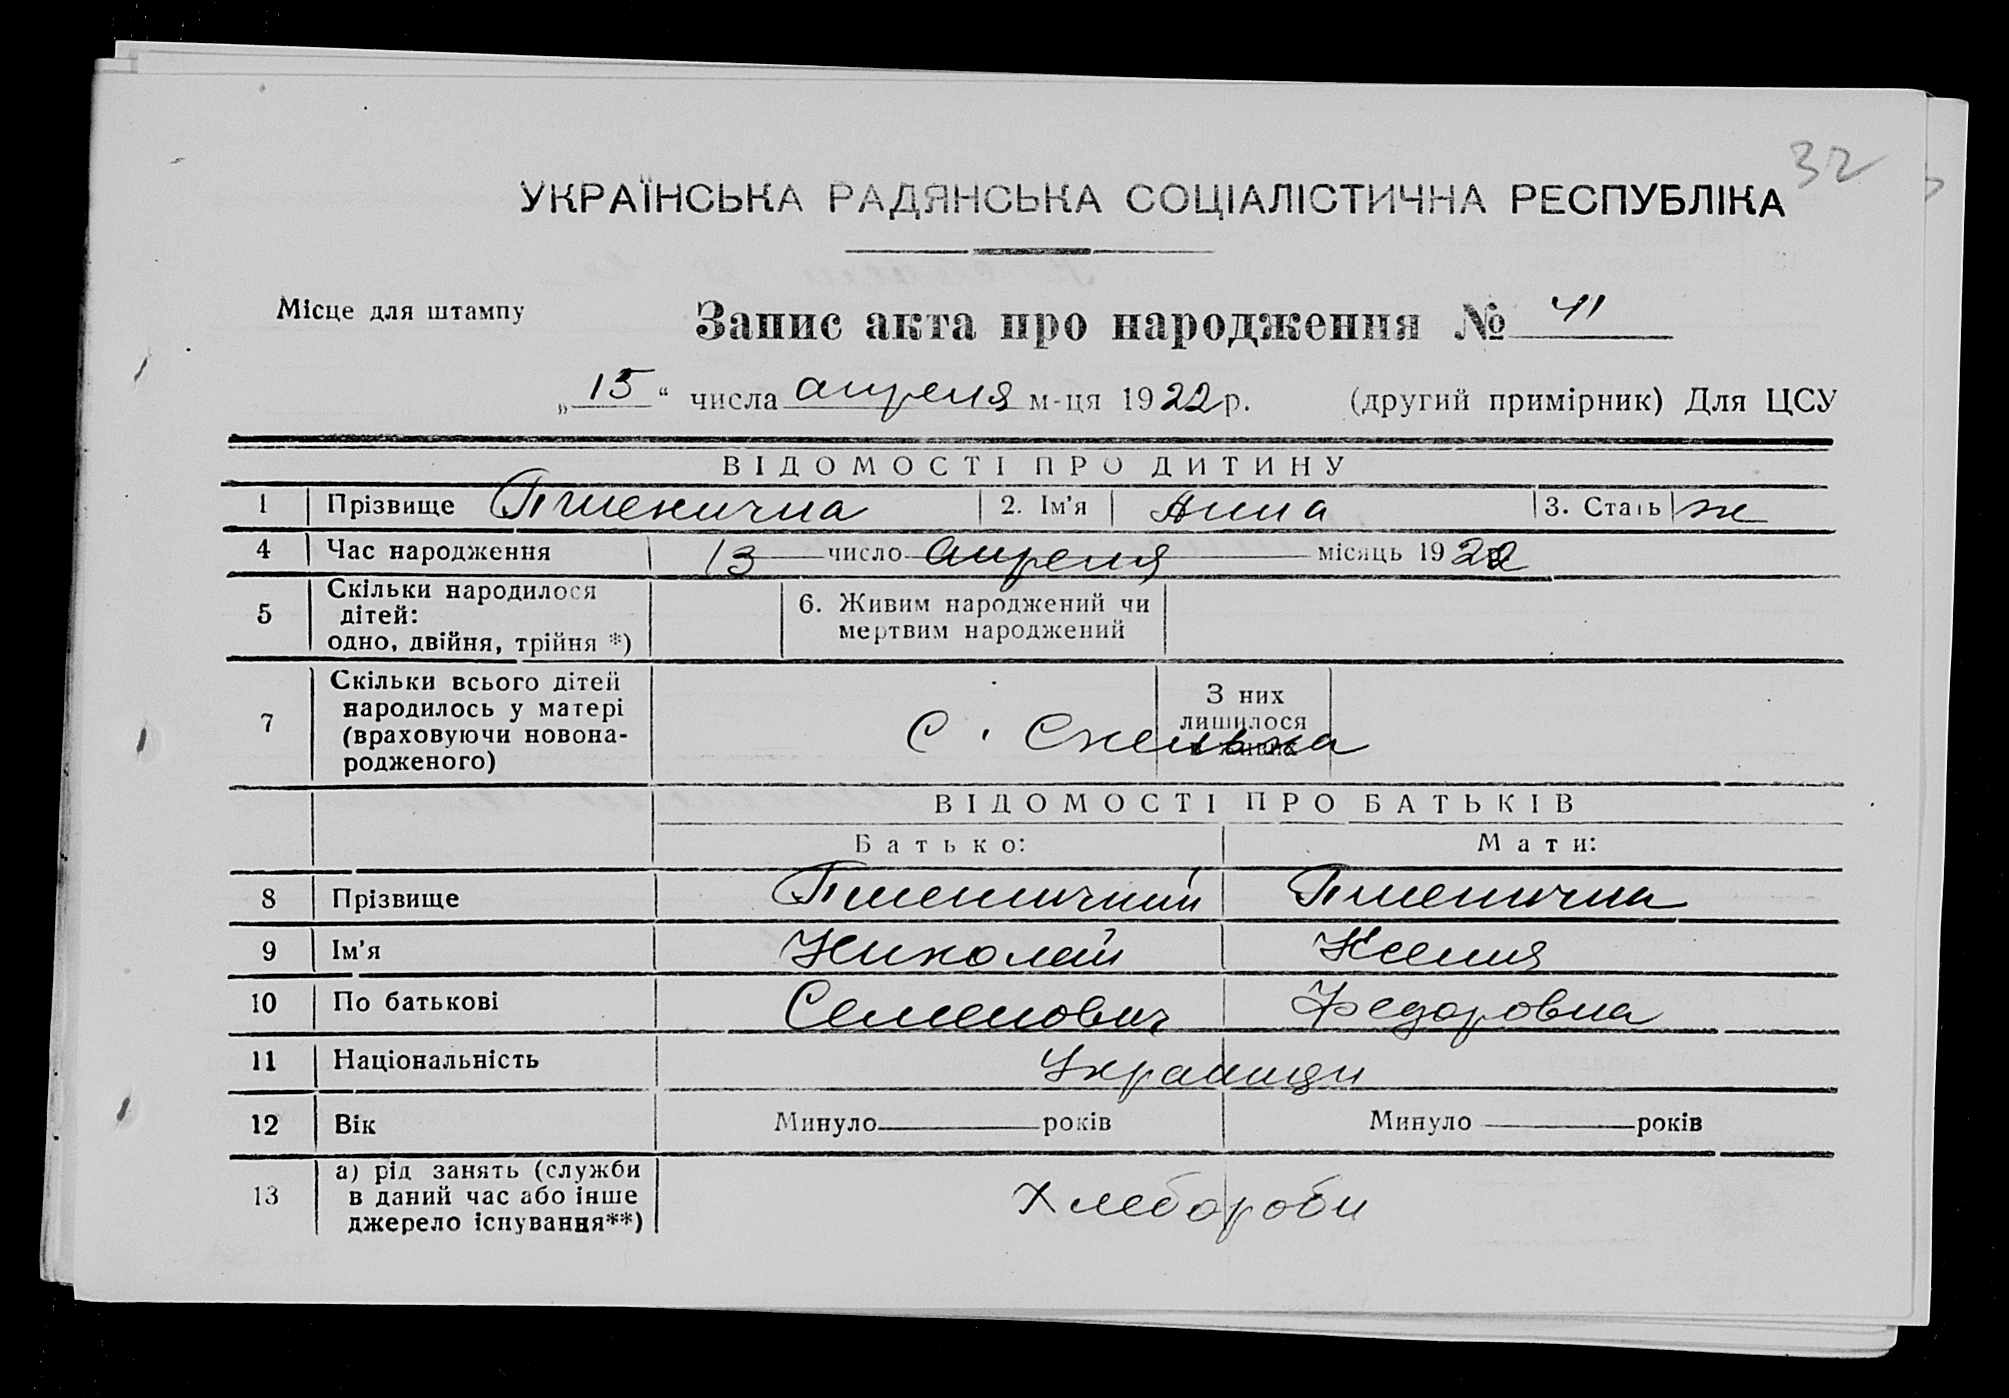 32
УКРАЇНСЬКА РАДЯНСЬКА СОЦІАЛІСТИЧНА РЕСПУБЛІКА
Місце для штампу
Запис акта про народження № 41
„15“ числа апреля м-ця 1922 р. (другий примірник) Для ЦСУ
ВІДОМОСТІ ПРО ДИТИНУ
1 Прізвище Пшенична 2. Ім'я Анна 3. Стать ж
4 Час народження 13 число апреля місяць 1922
5 Скільки народилося дітей: одно, двійня, трійня *) 6. Живим народжений чи мертвим народжений
7 Скільки всього дітей народилось у матері (враховуючи новонародженого) З них лишилося
с. Скелька
ВІДОМОСТІ ПРО БАТЬКІВ
Батько: Мати:
8 Прізвище Пшеничний Пшенична
9 Ім'я Николай Ксения
10 По батькові Семенович Федоровна
11 Національність Украинци
12 Вік Минуло років Минуло років
13 а) рід занять (служби в даний час або інше джерело існування**) Хлебороби